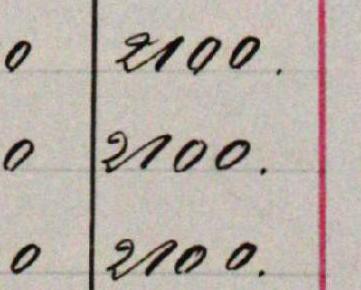 0 2100.
0 2100.
0 2100.